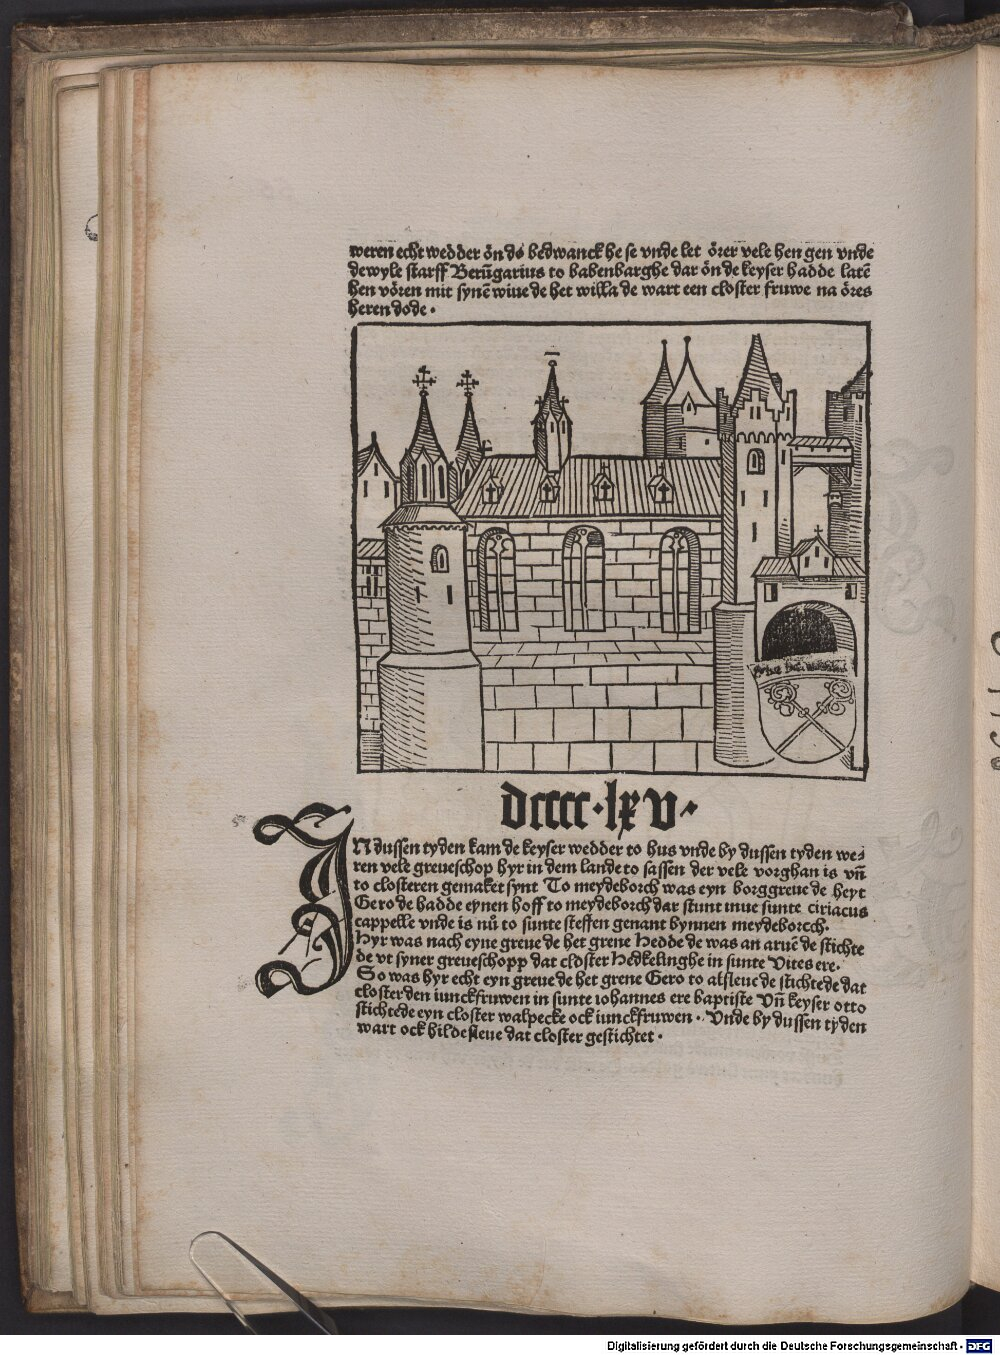 weren echt wedder ön do bedwanck he se vnde let örer vele hen gen vnde
dewyle starff Berūgarius to babenbarghe dar ön de keyser hadde latē
hen vören mit synē wiue de het willa de wart een closter fruwe na öres
heren dode .
dcccc·lxv·
IN dussen tyden kam de keyser wedder to hus vnde by dussen tyden we⸗
ren vele greueschop hyr in dem lande to sassen der vele vorghan is vñ
to closteren gemaket synt To meydeborch was eyn borggreue de heyt
Gero de hadde eynen hoff to meydeborch dar stunt inue sunte ciriacus
cappelle vnde is nů to sunte steffen genant bynnen meydeborcch.
Hyr was nach eyne greue de het grene Hedde de was an aruē de stichte
de vt syner greueschopp dat closter Hedkelinghe in sunte Vites ere.
So was hyr echt eyn greue de het grene Gero to alsleue de stichtede dat
closter den iunckfruwen in sunte iohannes ere baptiste Vñ keyser otto
stichtede eyn closter walpecke ock iunckfruwen . Vnde by dussen tyden
wart ock hildesleue dat closter gestichtet .
Digitalisierung gefördert durch die Deutsche Forschungsgemeinschaft - DFG